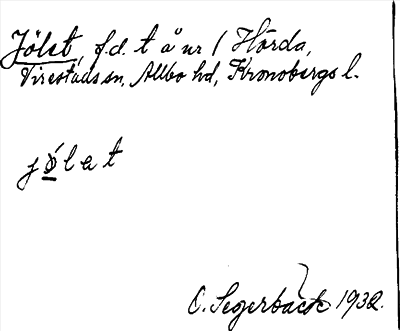 Jölet, f.d. t å nr 1 Hörda,
Virestads sn, Allbo hd, Kronobergs l.
jölet
O. Segerbäck 1932.